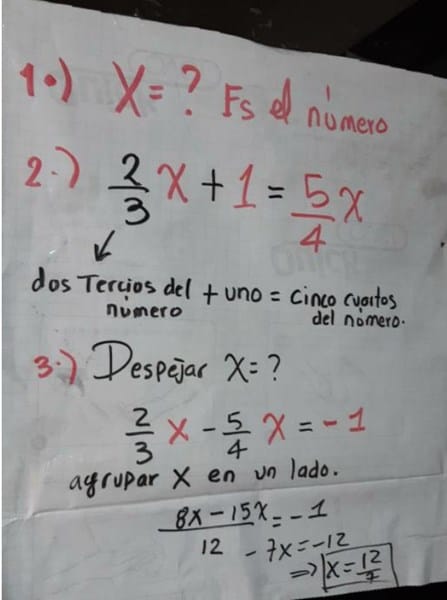 1.) X = ? Es el número
2.) 2/3 X + 1 = 5/4 X
dos Tercios del número + uno = cinco cuartos del número.
3.) Despejar X = ?
2/3 X - 5/4 X = - 1
agrupar X en un lado.
8X - 15X / 12 = - 1
- 7X = - 12
⇒ X = 12/7